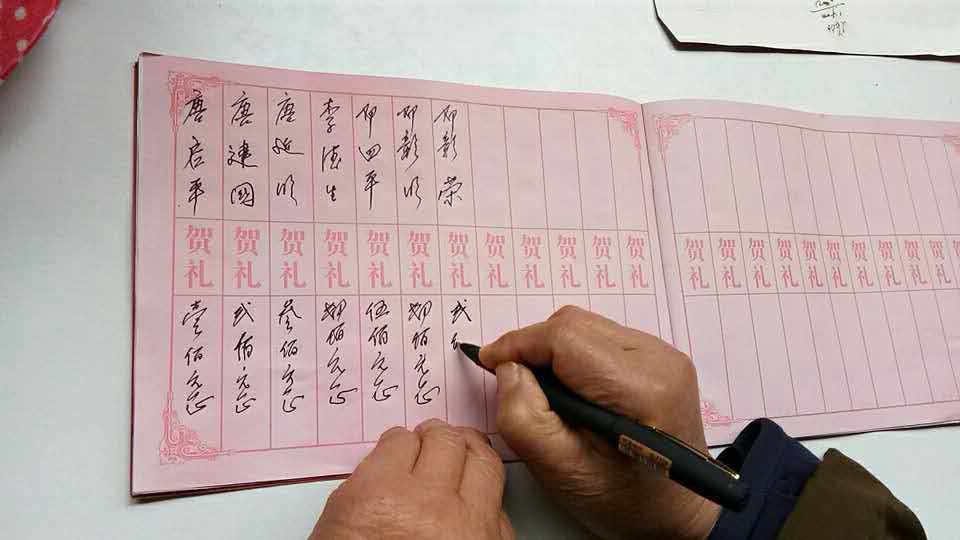 唐启平 贺礼 壹佰元正
唐建国 贺礼 贰佰元正
唐延明 贺礼 叁佰元正
李德生 贺礼 肆佰元正
邝四平 贺礼 伍佰元正
邝彭明 贺礼 肆佰元正
邝彭荣 贺礼 贰
贺礼
贺礼
贺礼
贺礼
贺礼
贺礼
贺礼
贺礼
贺礼
贺礼
贺礼
贺礼
贺礼